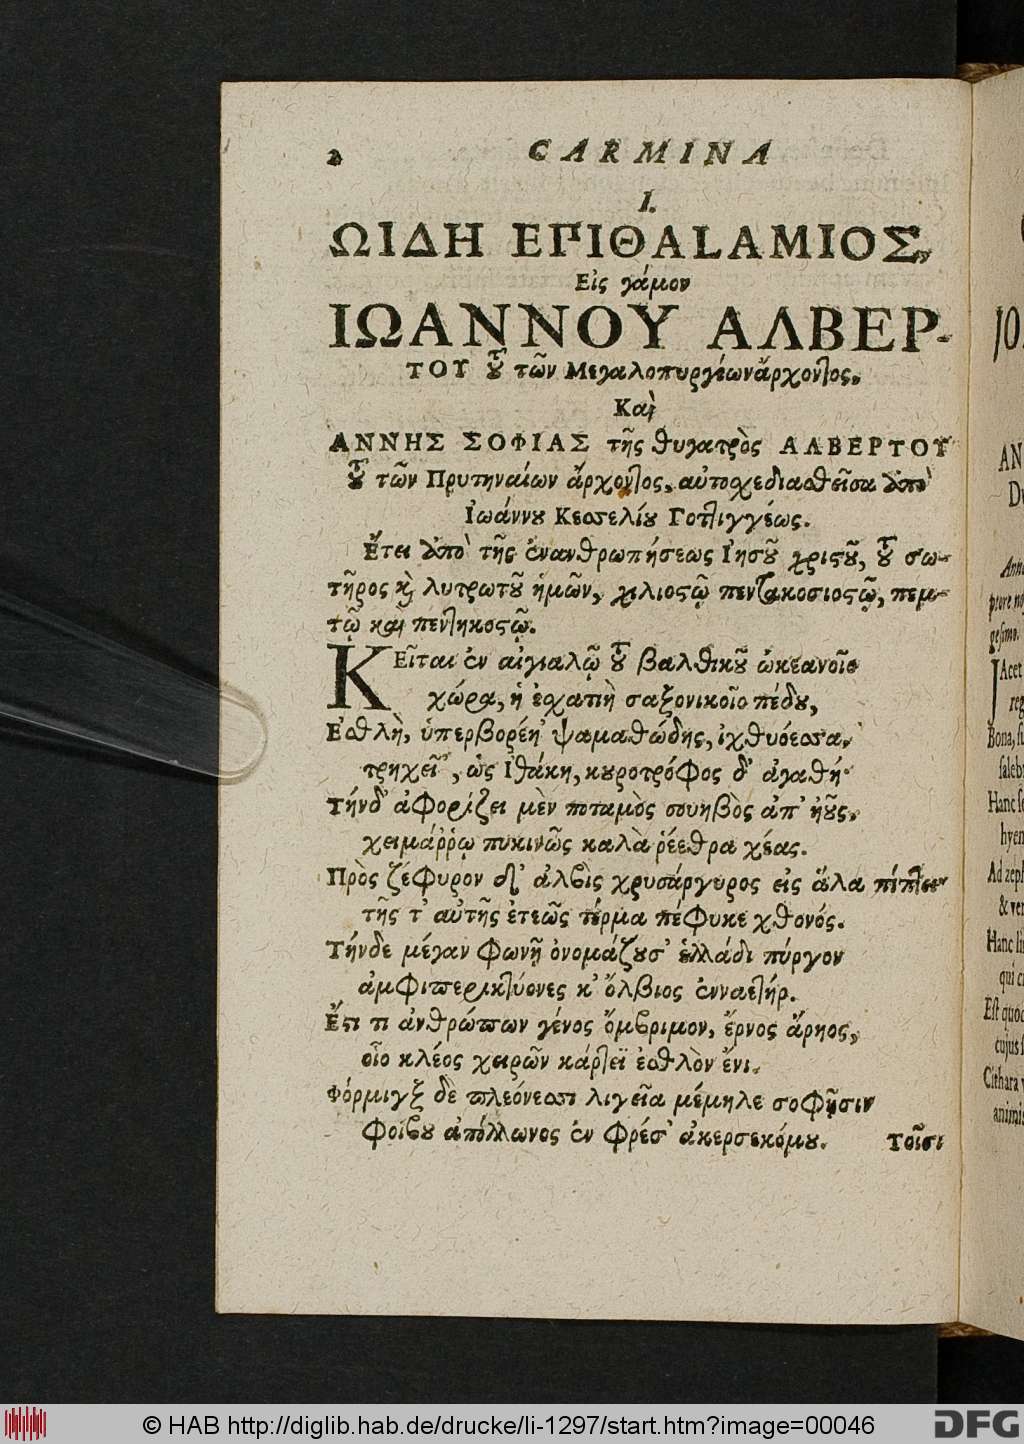 2 CARMINA
I.
ΩΙΔΗ ΕΠΙΘΑLΑΜΙΟΣ,
Εἰς γάμον
ΙΩΑΝΝΟΥ ΑΛΒΕΡ-
ΤΟΥ τοῦ τῶν Μεγαλοπυργέων ἄρχοντος,
Καὶ
ΑΝΝΗΣ ΣΟΦΙΑΣ τῆς θυγατρὸς ΑΛΒΕΡΤΟΥ
τοῦ τῶν Πρυτηναίων ἄρχοντος, αὐτοσχεδιασθεῖσα ἀπὸ
Ἰωάννου Κεσελίου Γοτλιγγέως.
Ἔτει ἀπὸ τῆς ἐνανθρωπήσεως Ἰησοῦ χριστοῦ, τοῦ σω-
τῆρος καὶ λυτρωτοῦ ἡμῶν, χιλιοστῷ πεντακοσιοστῷ, πέμ-
τῳ καὶ πεντηκοστῷ.
ΚΕῖται ἐν αἰγιαλῷ τοῦ βαλθικοῦ ὠκεανοῖο
χώρα, ἡ ἐσχατιὴ σαξονικοῖο πέδου,
Ἐσθλὴ, ὑπερβορέη, ψαμαθώδης, ἰχθυόεσσα,
τρηχεῖ', ὡς Ἰθάκη, κουροτρόφος δ' ἀγαθή·
Τήνδ' ἀφορίζει μὲν ποταμὸς σουηβὸς ἀπ' ἠοῦς,
χειμάῤῥῳ πυκινῶς καλὰ ῥέεθρα χέας.
Πρὸς ζέφυρον δ' ἀλβὶς χρυσάργυρος εἰς ἅλα πίπτει
τῆς τ' αὐτῆς ἐτεῶς τέρμα πέφυκε χθονός.
Τήνδε μέγαν φωνῇ ὀνομάζουσ' ἑλλάδι πύργον
ἀμφιπερικτύονες κ' ὄλβιος ἐνναετήρ.
Ἔστι τι ἀνθρώπων γένος ὄμβριμον, ἔρνος ἄρηος,
οἷο κλέος χειρῶν κάρτεϊ ἐσθλὸν ἔνι.
Φόρμιγξ δὲ πλεόνεσσι λιγεῖα μέμηλε σοφῇσιν
φοίβου ἀπόλλωνος ἐν φρέσ' ἀκερσεκόμου. Τοῖσι
© HAB http://diglib.hab.de/drucke/li-1297/start.htm?image=00046
DFG